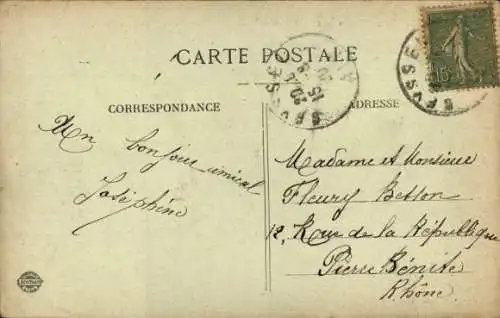 CARTE POSTALE
CORRESPONDANCE
ADRESSE
Un bonjour amical
Joséphine
Madame et Monsieur
Fleury Besson
12, Rue de la République
Pierre Bénite
Rhône
15